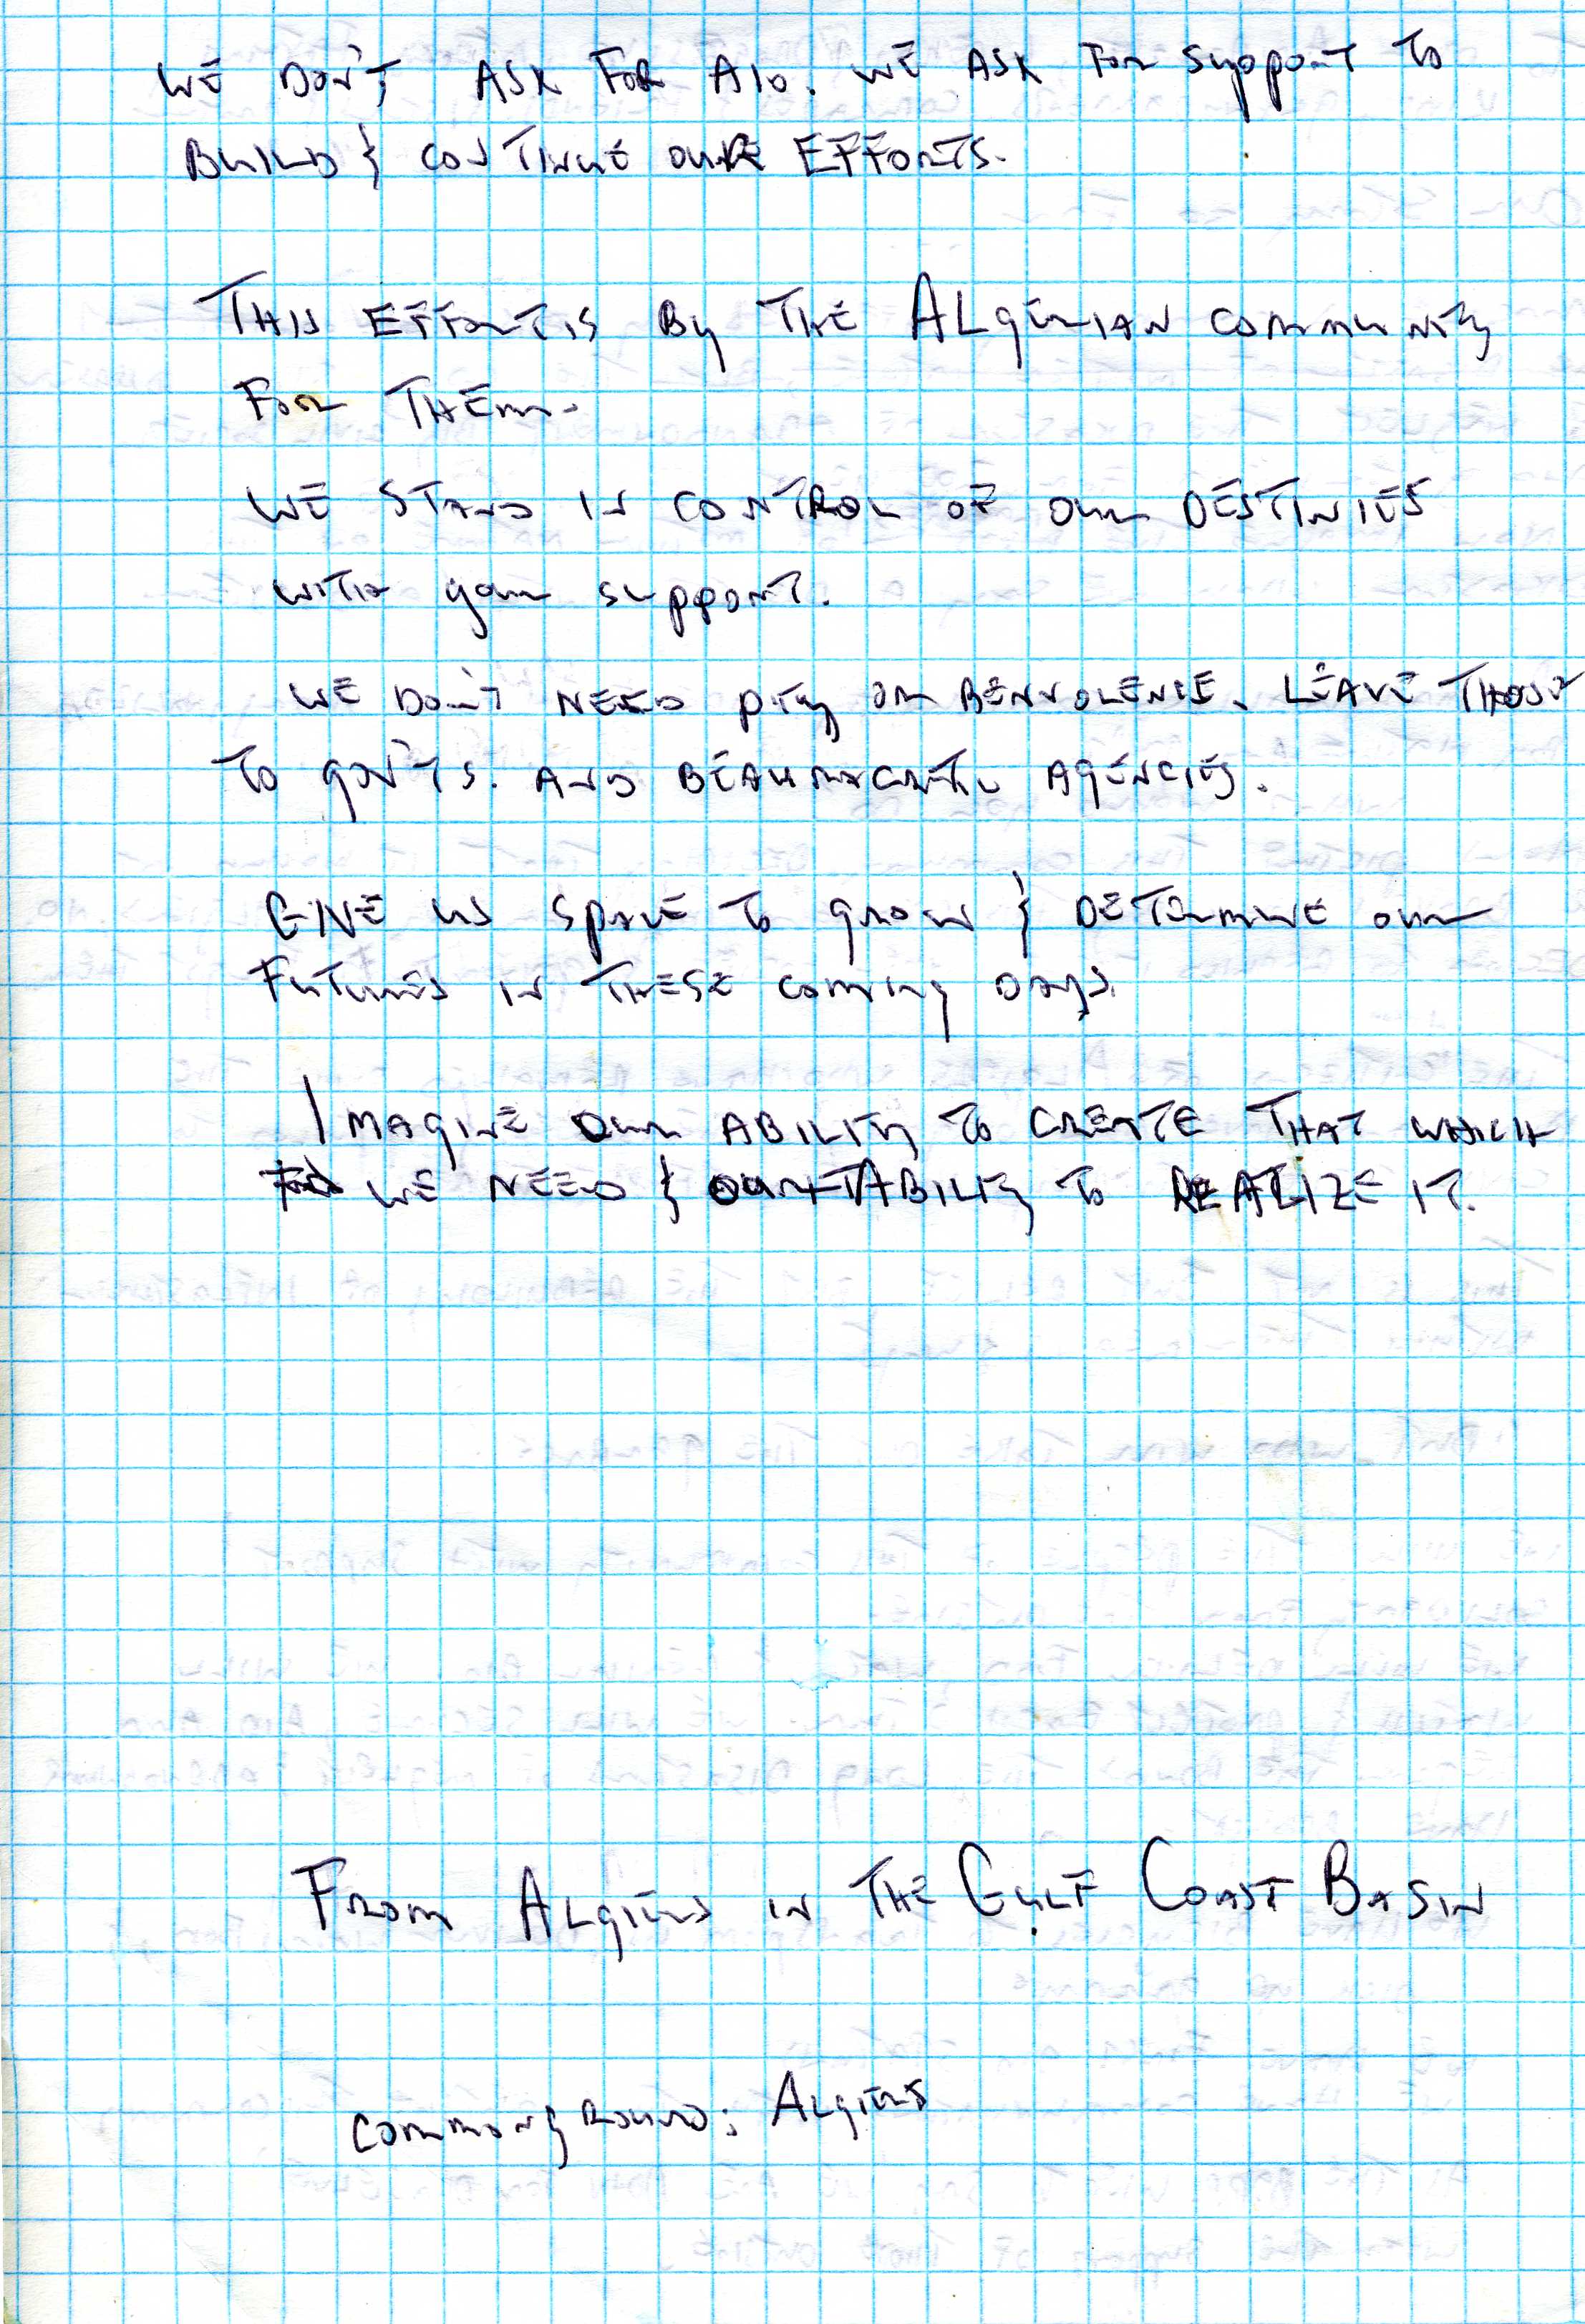 WE DON'T ASK FOR AID. WE ASK FOR SUPPORT TO
BUILD & CONTINUE OUR EFFORTS.
THIS EFFORT IS BY THE ALGERIAN COMMUNITY
FOR THEM.
WE STAND IN CONTROL OF OUR DESTINIES
WITH your support.
WE DON'T NEED pity OR BENVOLENCE. LEAVE THOSE
TO GOV'TS. AND BEAURACRATIC AGENCIES.
GIVE US SPACE TO grow & DETERMINE OUR
FUTURES IN THESE COMING DAYS.
IMAGINE OUR ABILITY TO CREATE THAT WHICH
WE NEED & OUR ABILITY TO REALIZE IT.
FROM ALGIERS IN THE GULF COAST BASIN
COMMONGROUND: ALGIERS